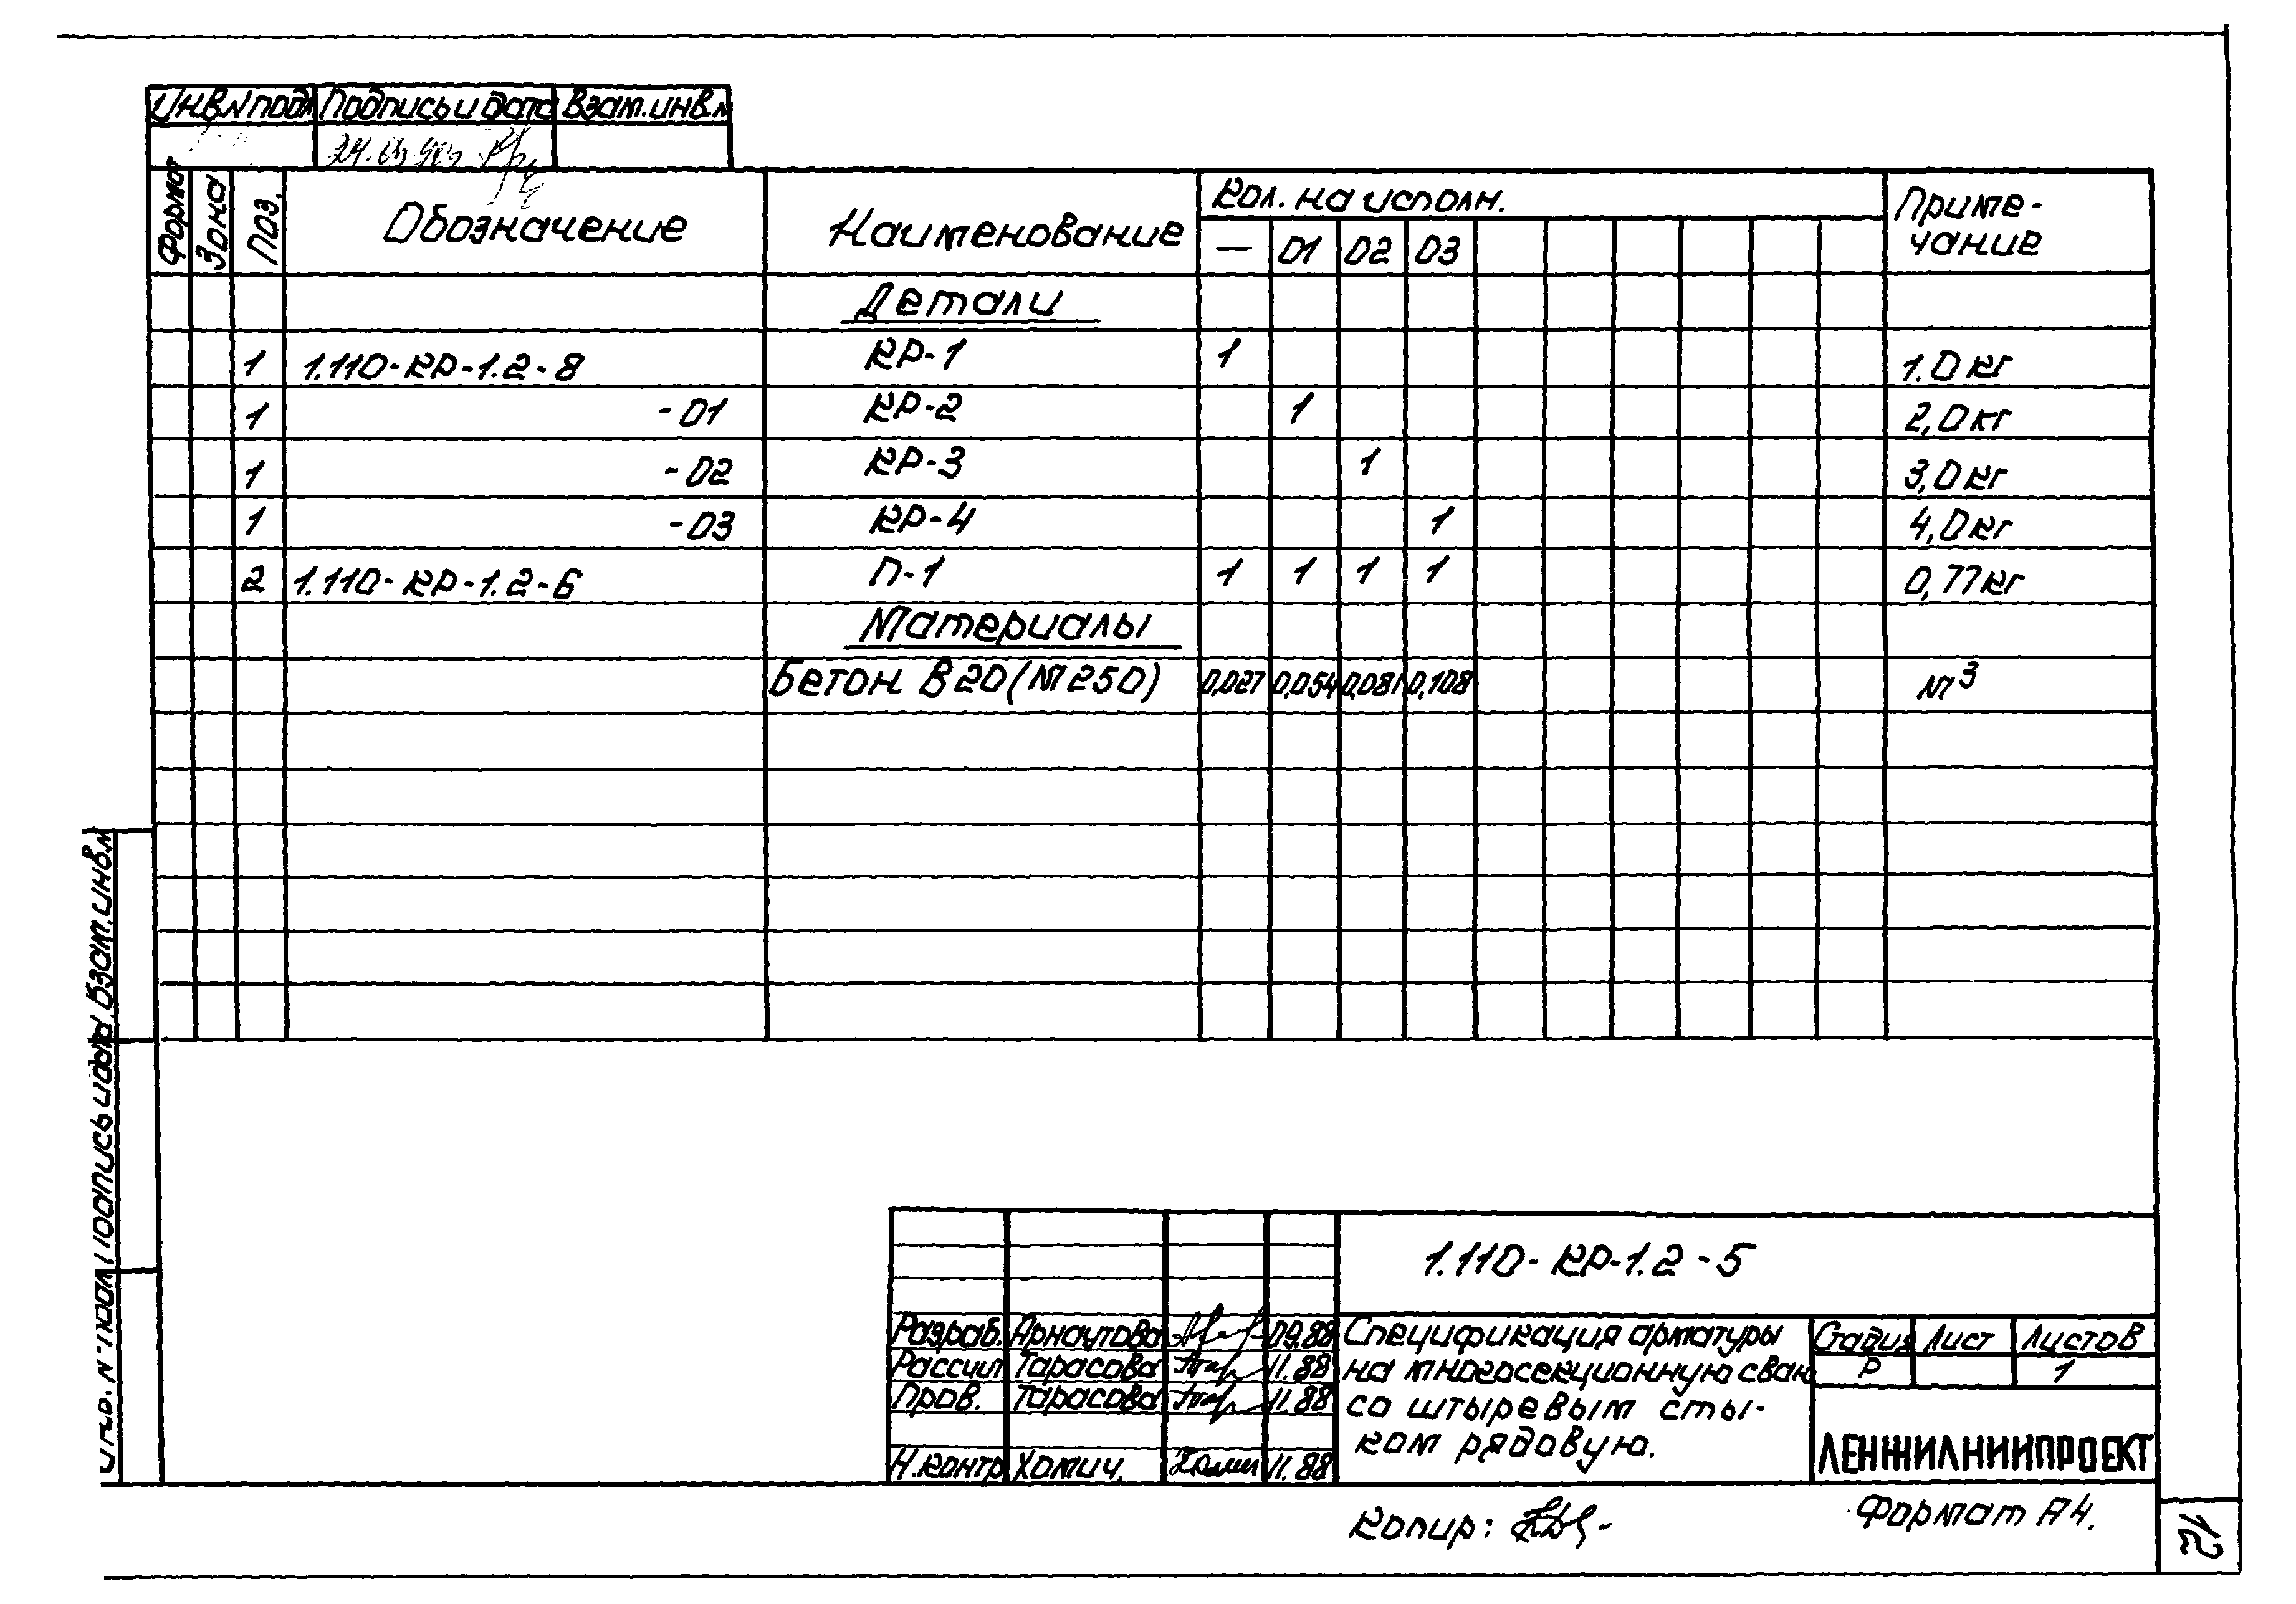 Инв.N подл Подпись и дата Взам.инв.N
Формат Зона Поз. Обозначение Наименование Кол. на исполн. Приме-
чание
— 01 02 03
Детали
1 1.110-КР-1.2-8 КР-1 1 1.0 кг
1 -01 КР-2 1 2,0 кг
1 -02 КР-3 1 3,0 кг
1 -03 КР-4 1 4,0 кг
2 1.110-КР-1.2-6 П-1 1 1 1 1 0,77 кг
Материалы
Бетон В20(М250) 0,027 0,054 0,081 0,108 м³
Взам.инв.N
Подпись и дата
Инв. N подл
1.110-КР-1.2-5
Разраб. Арнаутова 09.88
Рассчит Тарасова 11.88
Пров. Тарасова 11.88
Н.контр Хомич. 11.88
Спецификация арматуры
на многосекционную сваю
со штыревым сты-
ком рядовую.
Стадия Лист Листов
Р 1
ЛЕНЖИЛНИИПРОЕКТ
Копир:
Формат А4.
12